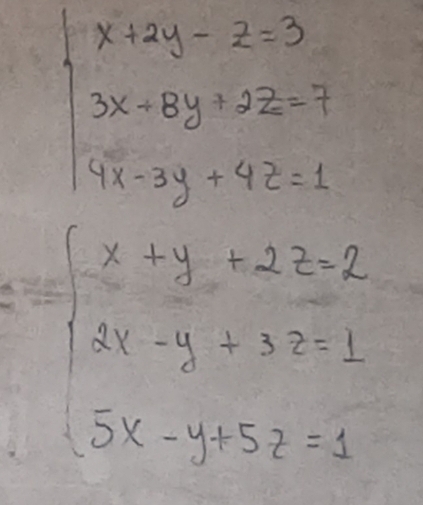 x+2y-z=3
3x+8y+2z=7
4x-3y+4z=1
x+y+2z=2
2x-y+3z=1
5x-y+5z=1